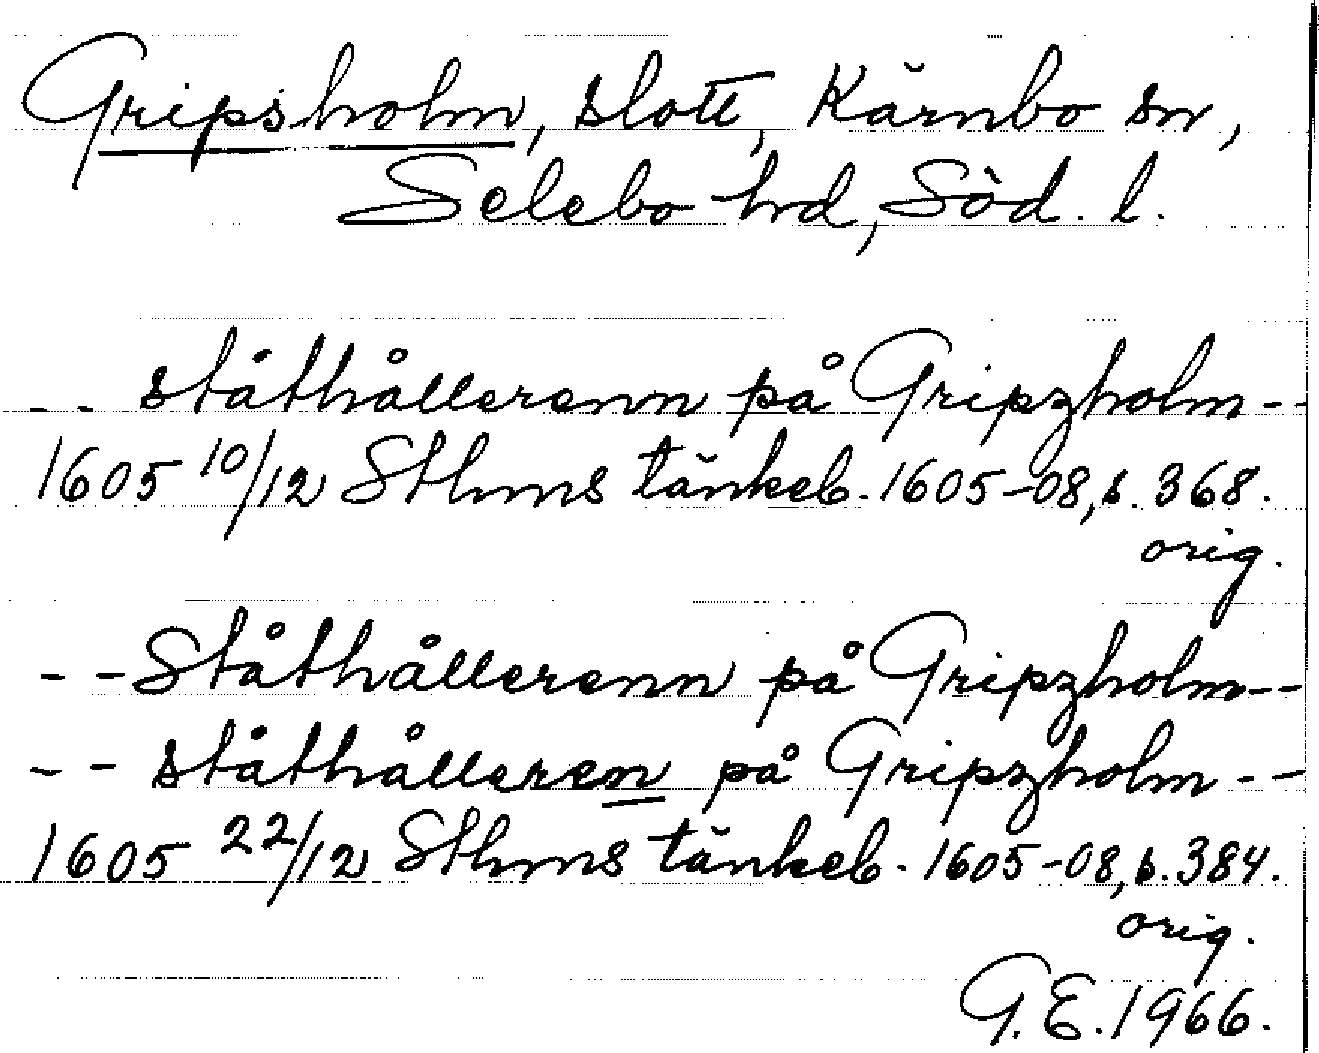 Gripsholm, slott, Kärnbo sn,
Selebo hd, Söd. l.
- - ståthållerenn på Gripzholm - -
1605 10/12 Sthms tänkeb. 1605-08, s. 368.
orig.
- - Ståthållerenn på Gripzholm - -
- - ståthålleren på Gripzholm - -
1605 22/12 Sthms tänkeb. 1605-08, s. 384.
orig.
G.E. 1966.